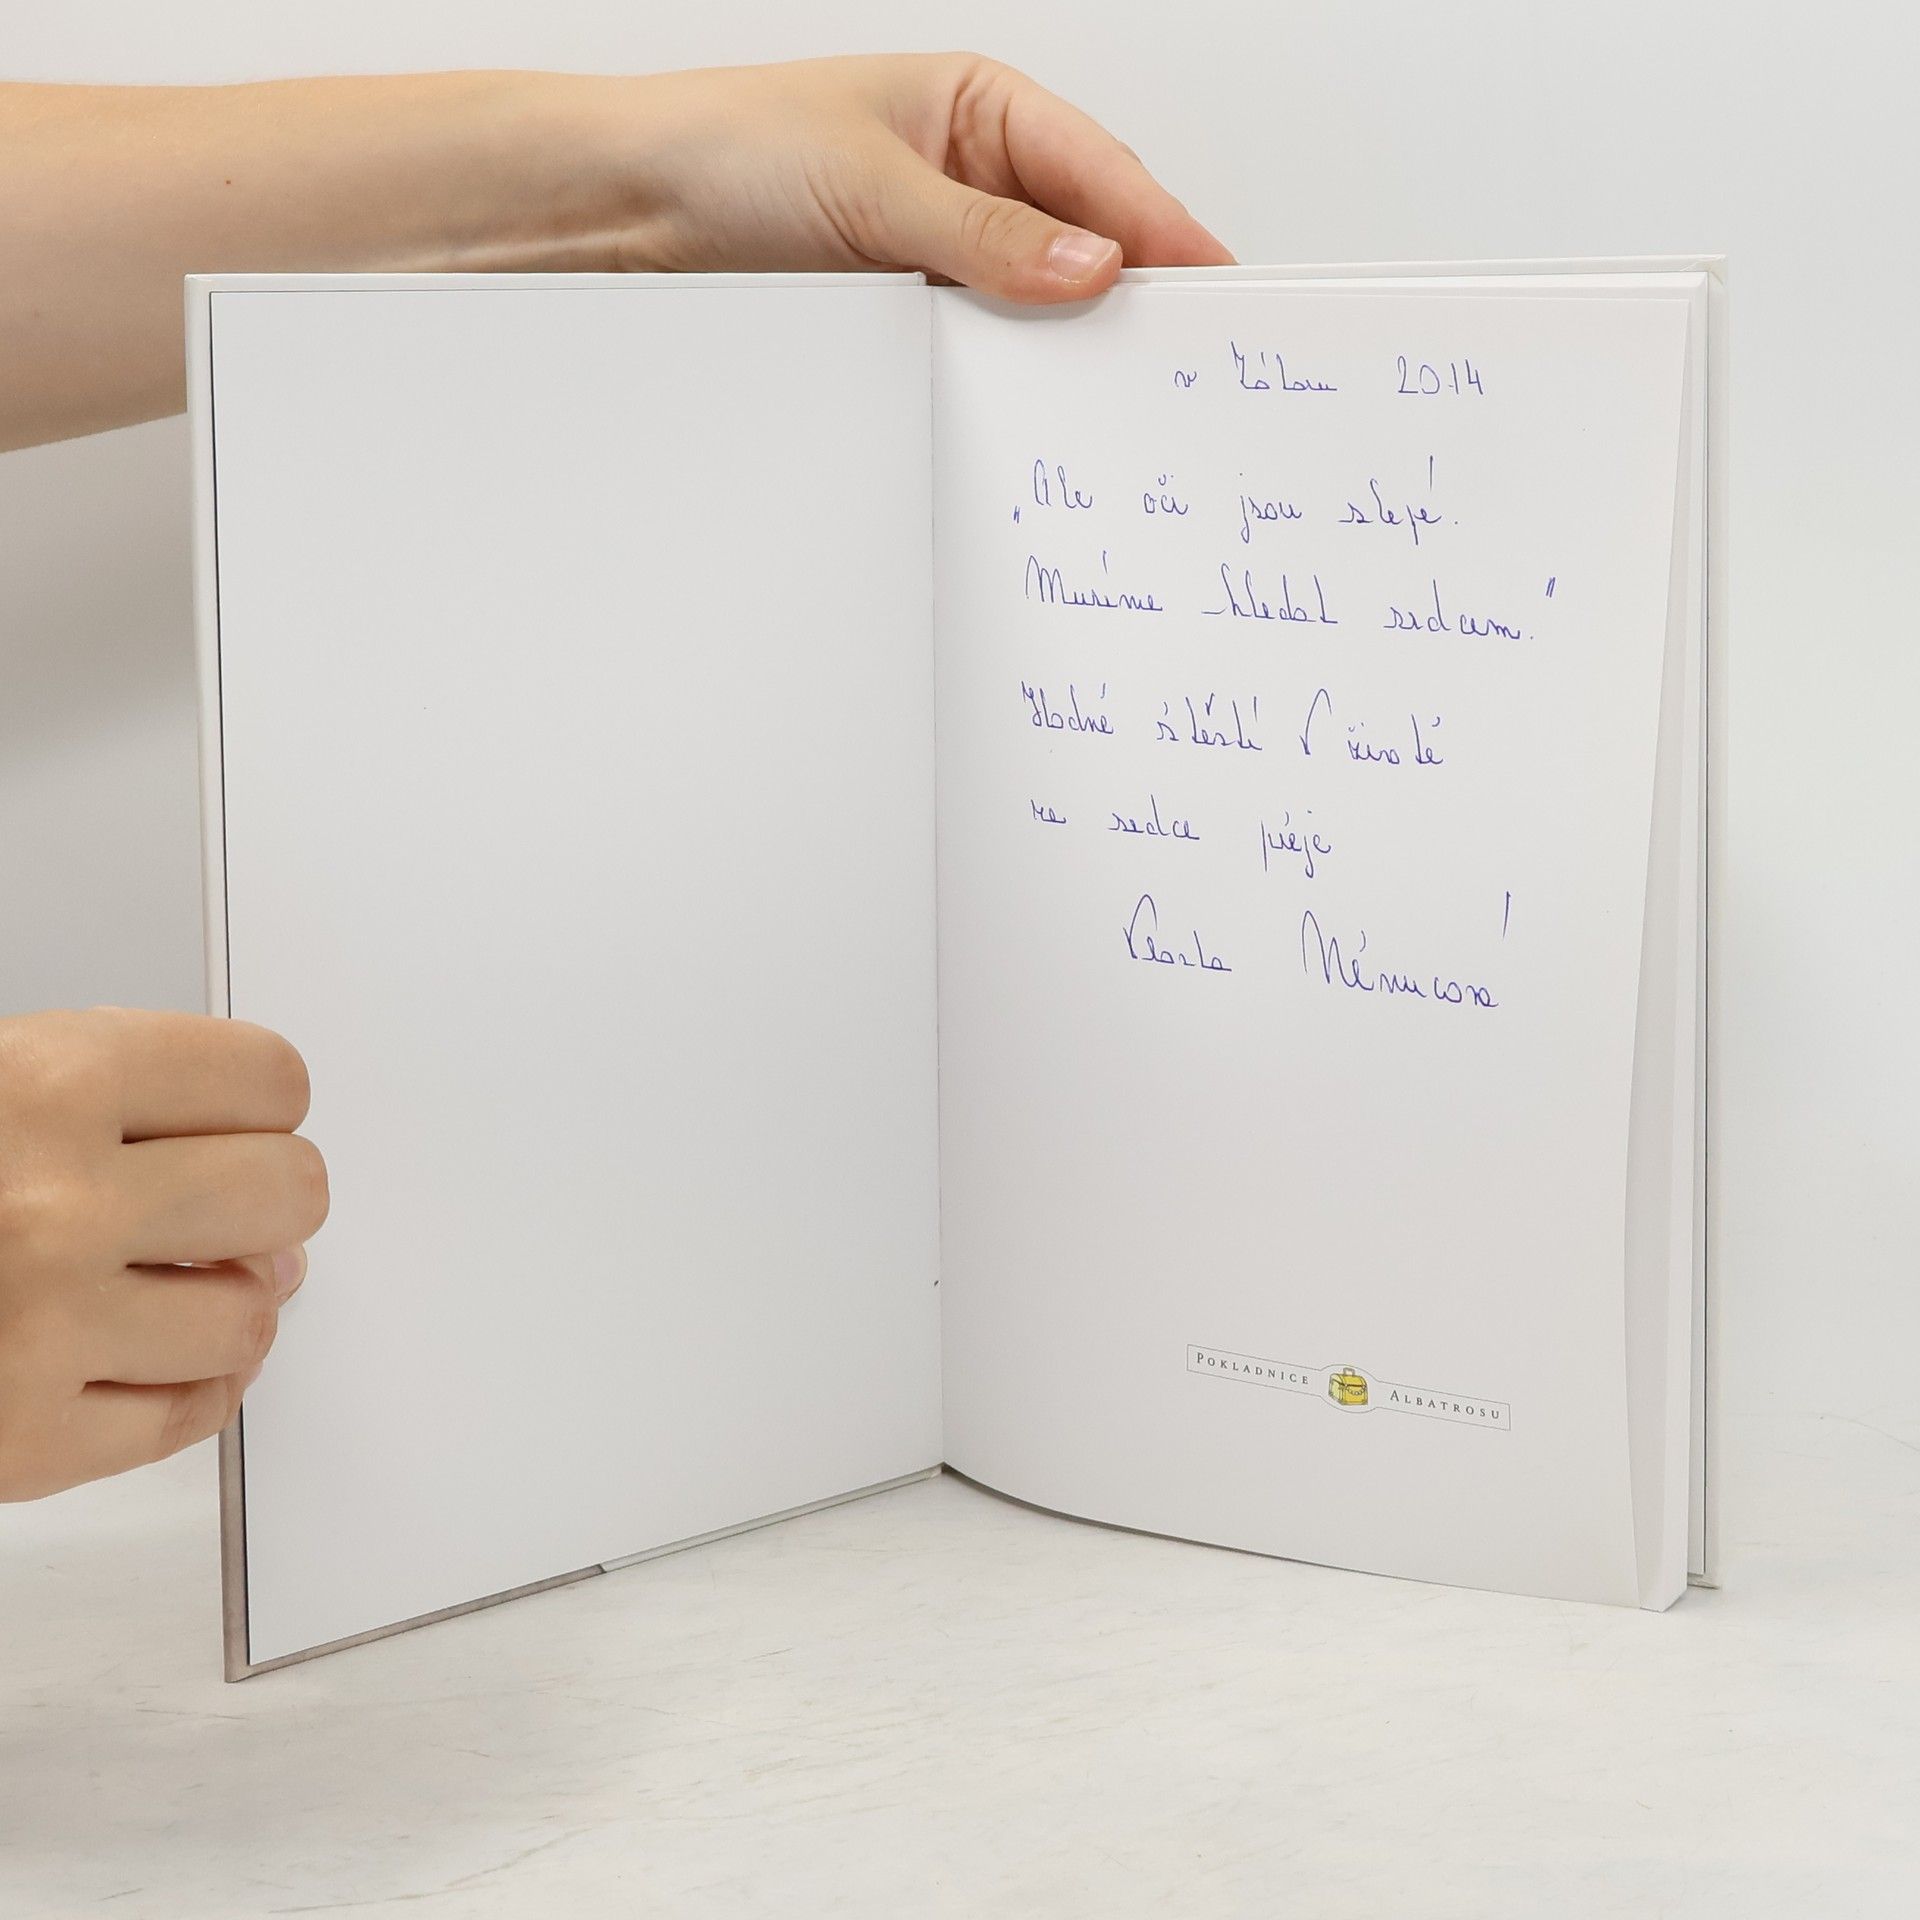 v 2014
„Ale oči jsou slepé.
Musíme hledat srdcem."
Hodně štěstí v životě
ze srdce přeje
Vlasta
POKLADNICE ALBATROSU